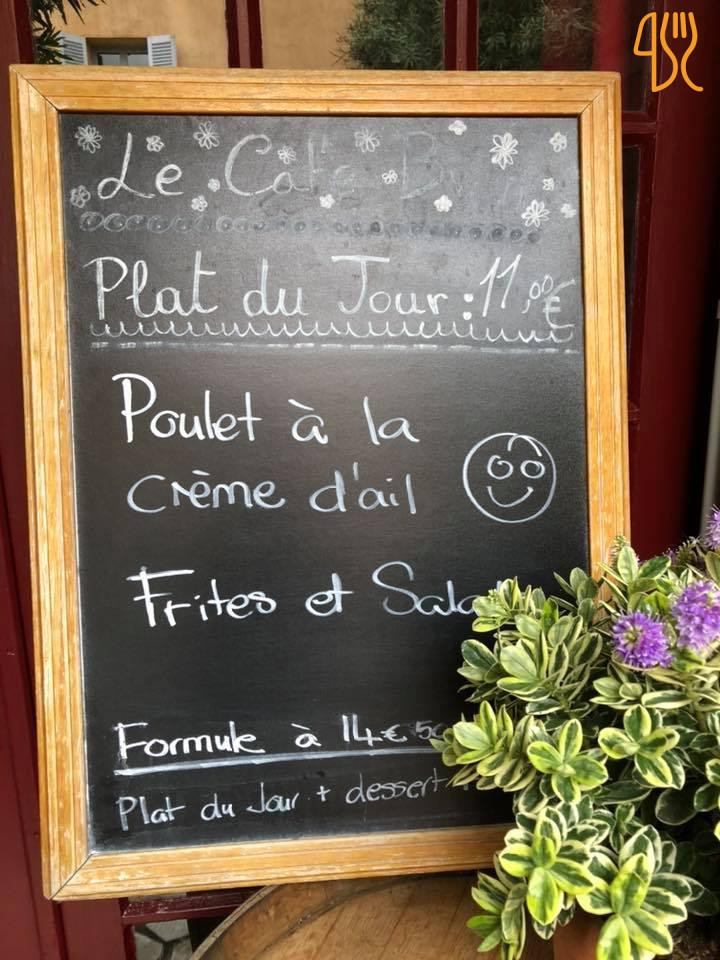 Le Café
Plat du Jour : 11,00€
Poulet à la
crème d'ail
Frites et
Formule à 14€50
Plat du Jour + dessert